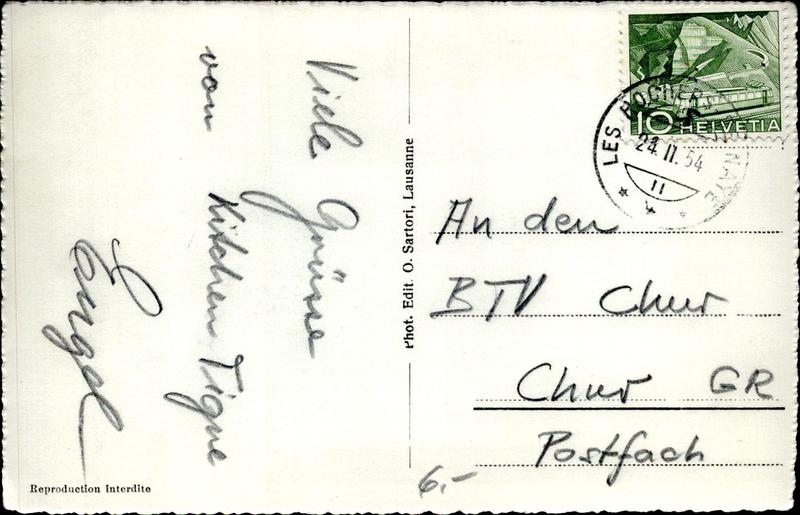 Viele Grüsse
von
Phot. Edit. O. Sartori, Lausanne
Reproduction Interdite
10 HELVETIA
LES ROCHERS DE NAYE
24.II.54
11
An den
BTV Chur
Chur GR
Postfach
6.-